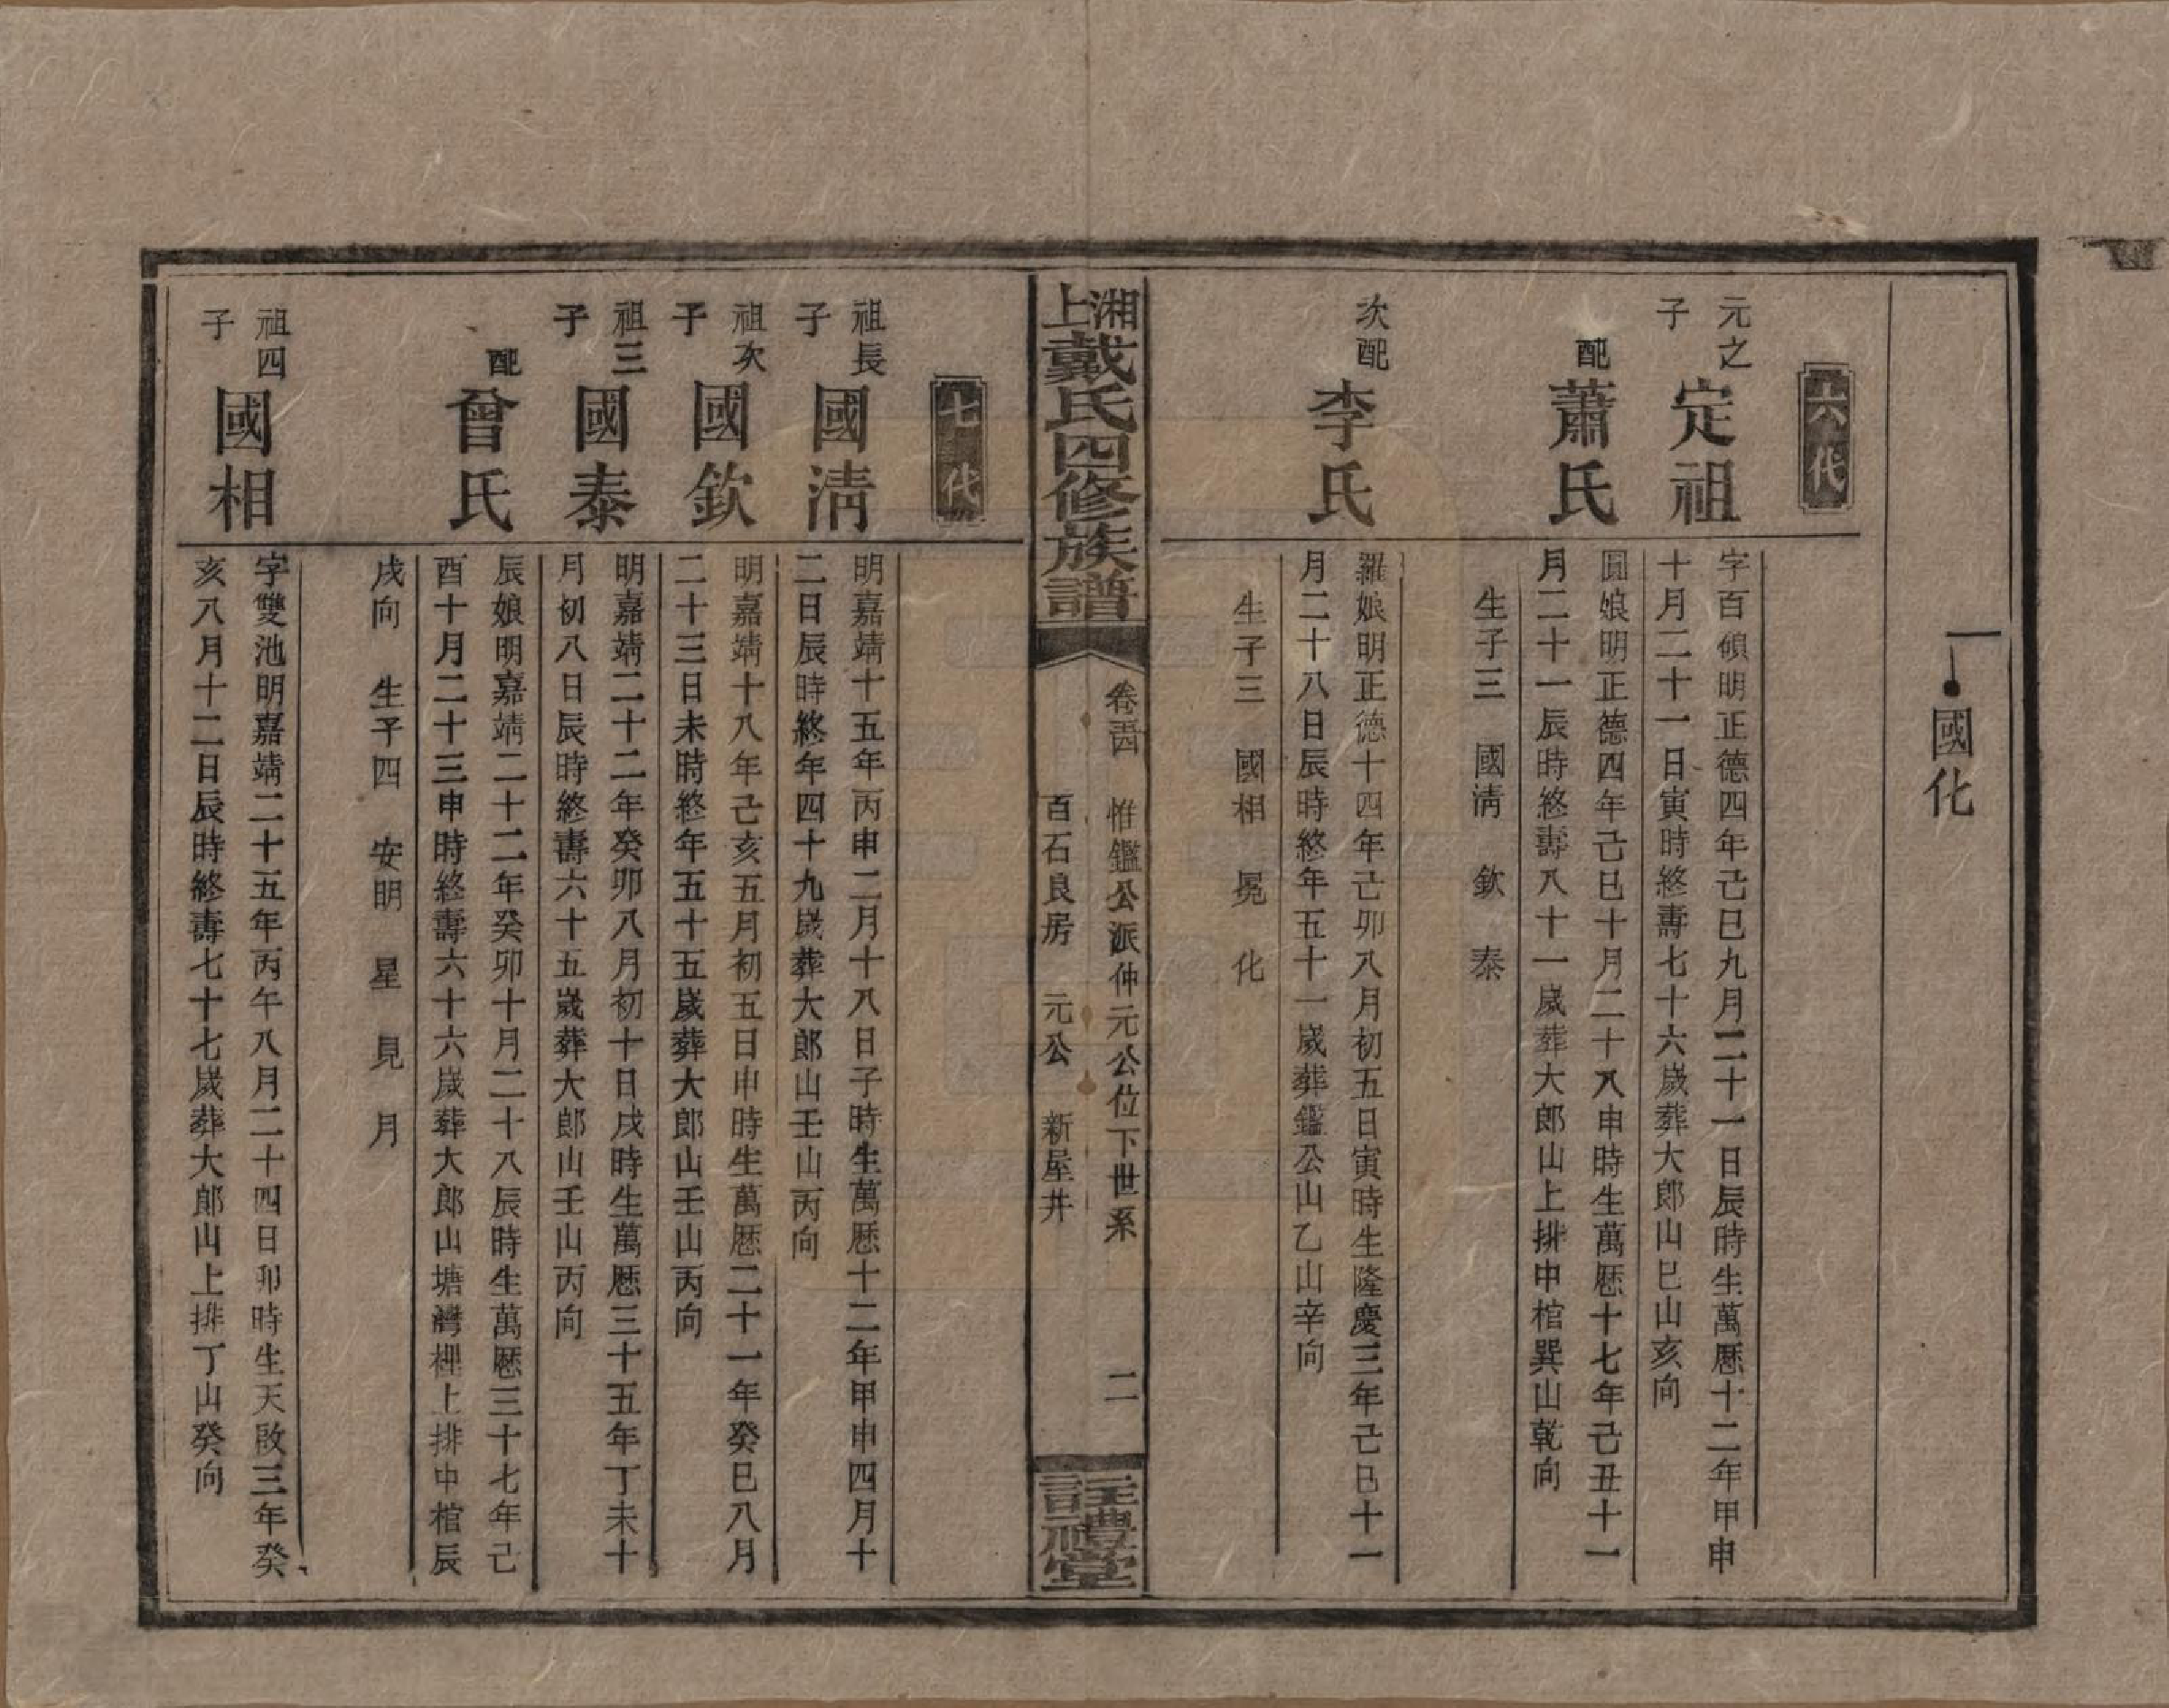 國化
六代
元之子
定祖
字百碩明正德四年己巳九月二十一日辰時生萬厯十二年甲申
十月二十一日寅時終壽七十六嵗葬大郎山巳山亥向
配
蕭氏
圓娘明正德四年己巳十月二十八申時生萬厯十七年己丑十一
月二十一辰時終壽八十一嵗葬大郎山上排中棺巽山乾向
生子三 國清 欽 泰
次配
李氏
羅娘明正德十四年己卯八月初五日寅時生隆慶三年己巳十一
月二十八日辰時終年五十一嵗葬鑑公山乙山辛向
生子三 國相 冕 化
湘上戴氏四修族譜
惟鑑公派仲元公位下世系
百石良房 元公 新屋井
二
註禮堂
七代
祖長子
國清
明嘉靖十五年丙申二月十八日子時生萬厯十二年甲申四月十
二日辰時終年四十九嵗葬大郎山壬山丙向
祖次子
國欽
明嘉靖十八年己亥五月初五日申時生萬厯二十一年癸巳八月
二十三日未時終年五十五嵗葬大郎山壬山丙向
祖三子
國泰
明嘉靖二十二年癸卯八月初十日戌時生萬厯三十五年丁未十
月初八日辰時終壽六十五嵗葬大郎山壬山丙向
配
曾氏
辰娘明嘉靖二十二年癸卯十月二十八辰時生萬厯三十七年己
酉十月二十三申時終壽六十六嵗葬大郎山塘灣裡上排中棺辰
戌向 生子四 安明 星 見 月
祖四子
國相
字雙池明嘉靖二十五年丙午八月二十四日卯時生天啟三年癸
亥八月十二日辰時終壽七十七嵗葬大郎山上排丁山癸向